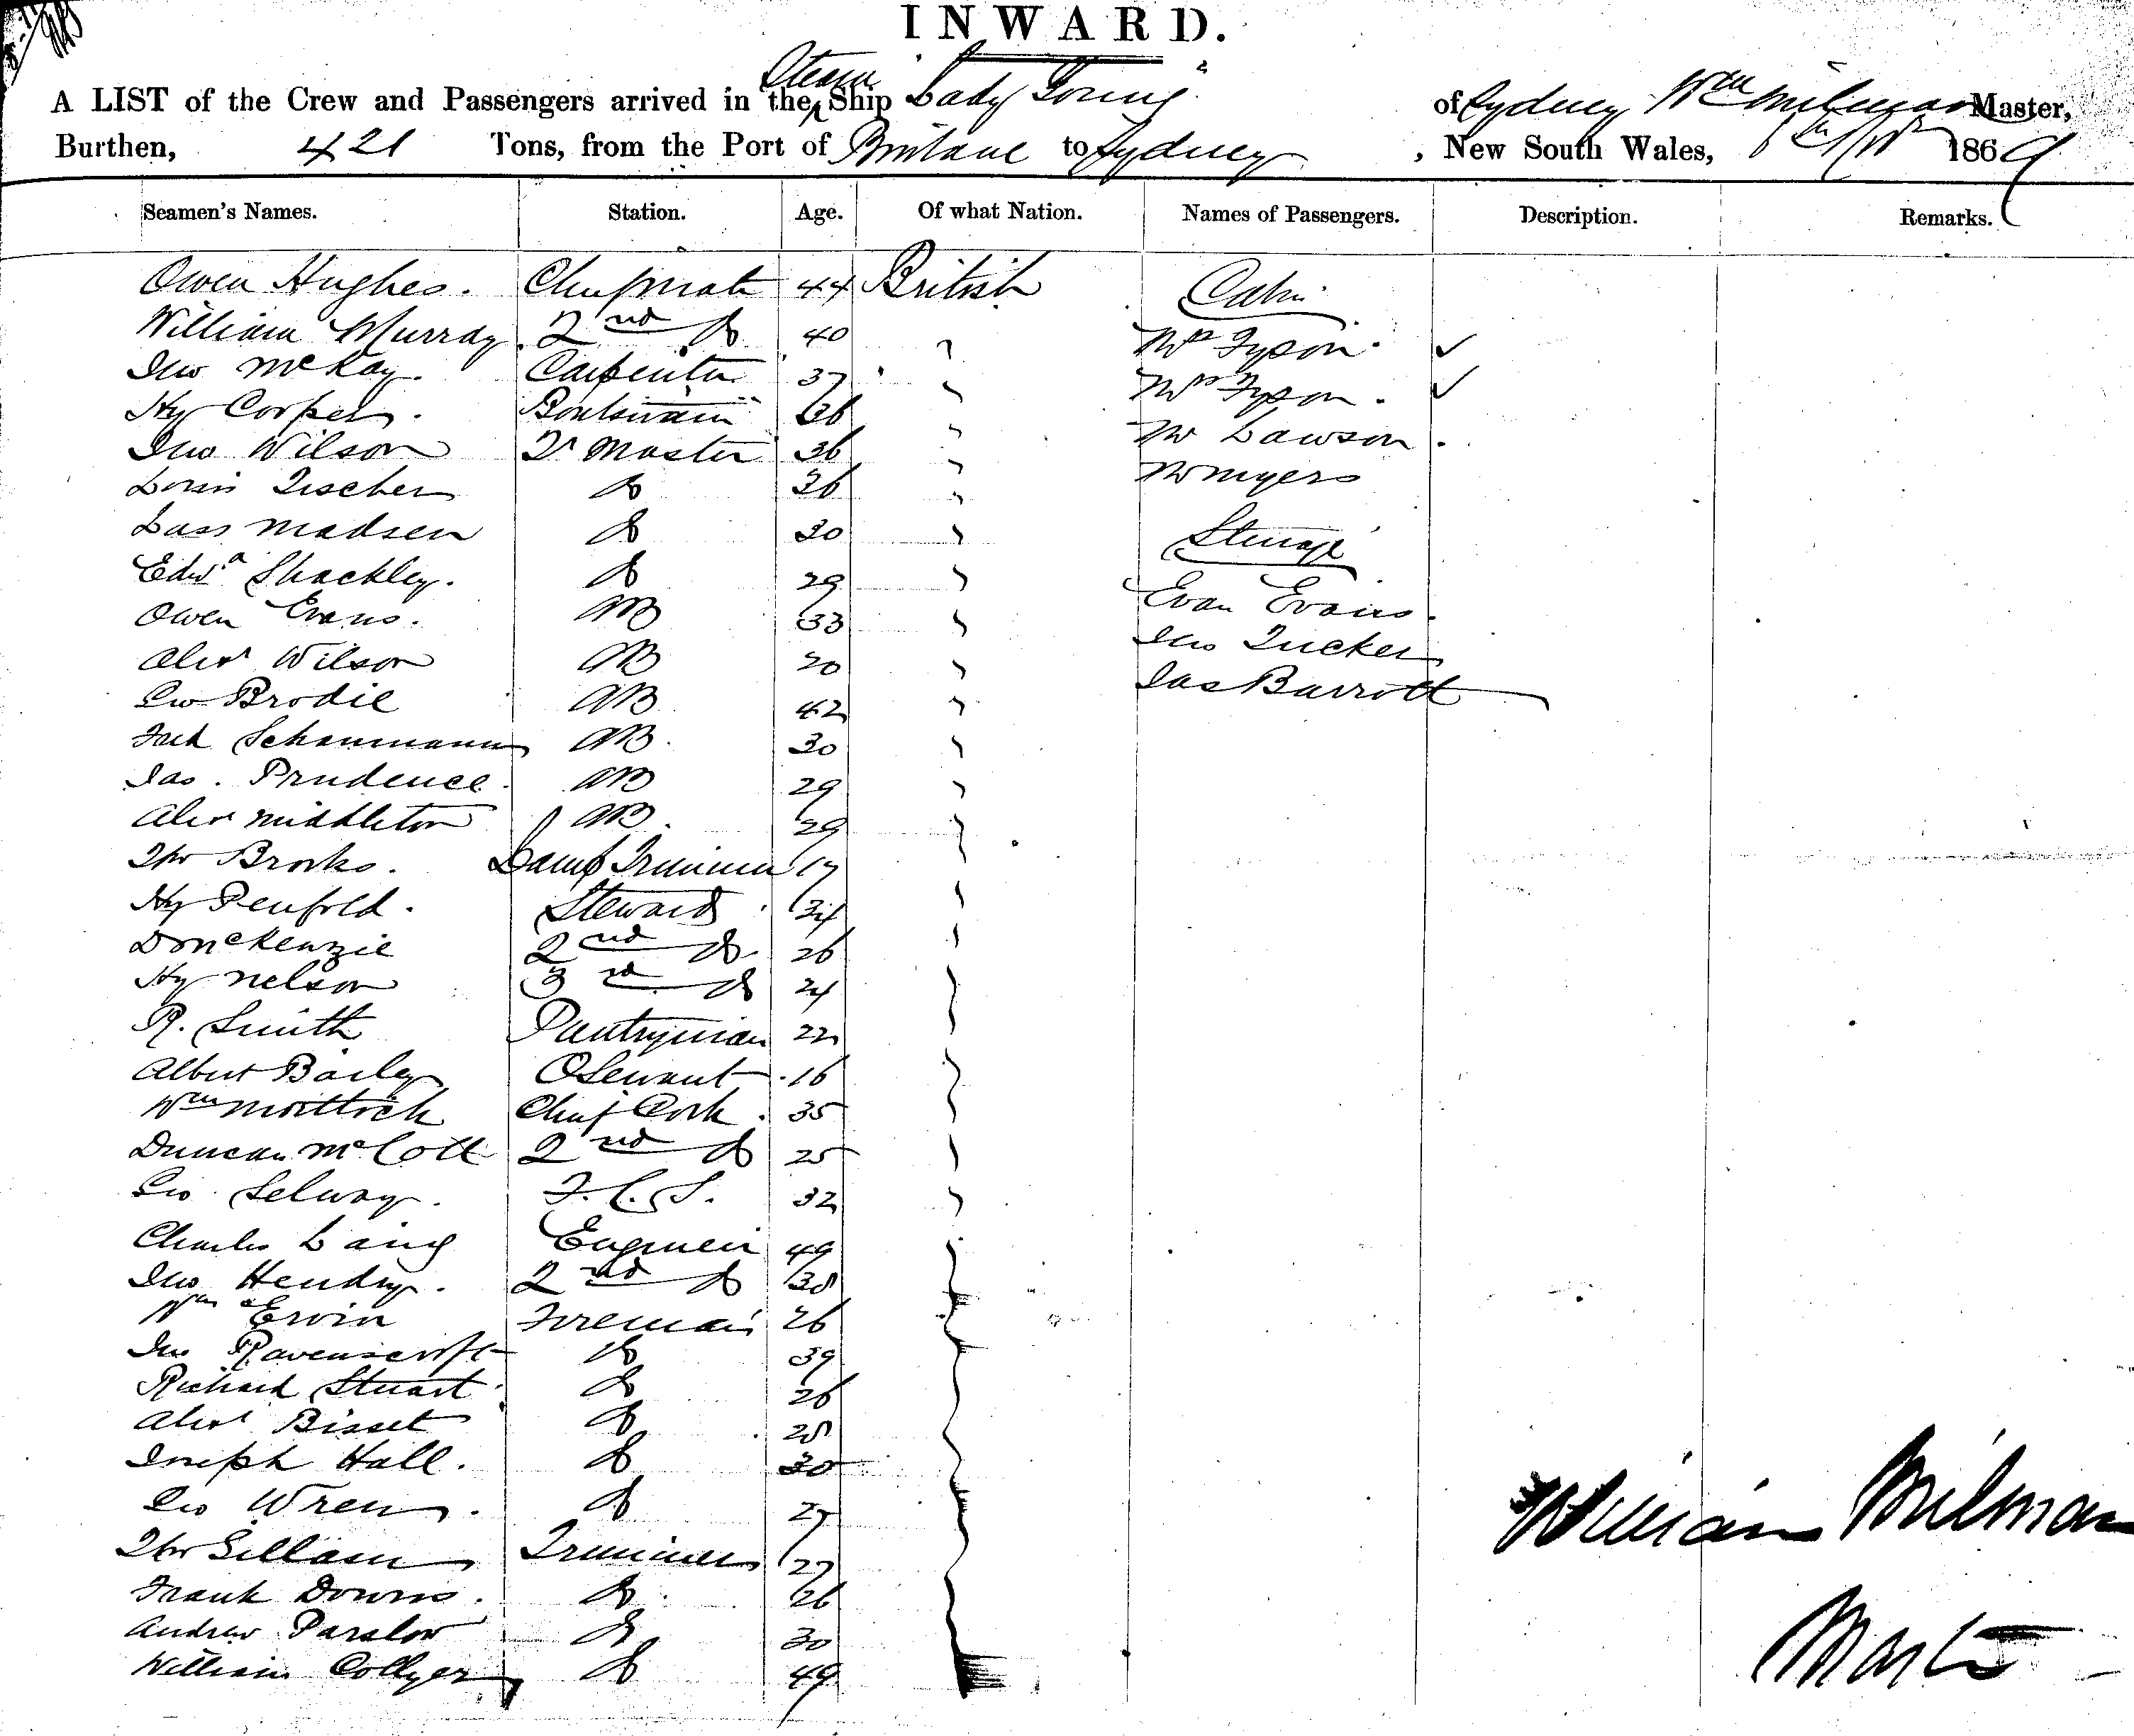 INWARD.
A LIST of the Crew and Passengers arrived in the Steam Ship "Lady Young" of Sydney Wm Milman Master,
Burthen, 421 Tons, from the Port of Brisbane to Sydney, New South Wales, 1869
Seamen's Names. Station. Age. Of what Nation. Names of Passengers. Description. Remarks.
Owen Hughes. Chief Mate 44 British Cabin
William Murray. 2nd Do 40 "
Mr Tyson. ✓
Jno McKay. Carpenter 37 "
Mrs Tyson. ✓
Hy Cooper. Boatswain 36 "
Mr Lawson.
Jno Wilson Qr Master 36 "
Mr Myers
Louis Tischer Do 36 "
Lass Madsen Do 30 "
Steerage
Edwd Shackley. Do 29 "
Evan Evans.
Owen Evans. AB 33 "
Jno Tucker
Alexr Wilson AB 20 "
Jas Barrott
Geo Brodie AB 42 "
Fred Schaumann AB. 30 "
Jas. Prudence. AB 29 "
Alexr Middleton AB. 29 "
Thos Brooks. Lamp Trimmer 17
Hy Penfold. Steward. 34
D McKenzie 2nd Do. 26
Hy Nelson 3rd Do 24
R. Smith Pantryman 22
Albert Bailey 16
Wm Chief Cook. 35
Duncan McColl 2nd Do 25
Geo Selway. F.C.S. 32
Charles Laing Engineer 49
Jno Hendry. 2nd Do 38
Wm Ervin Fireman 26
Jno Ravenscroft Do 39
Richard Stuart. Do 26
Alexr Bisset Do 28
Joseph Hall. Do 30
Geo Wren. Do 27
Thos Gillam Trimmer 27
Frank Downs. Do 26
Andrew Parslow Do 30
William Collyer Do 49
William Milman
Master